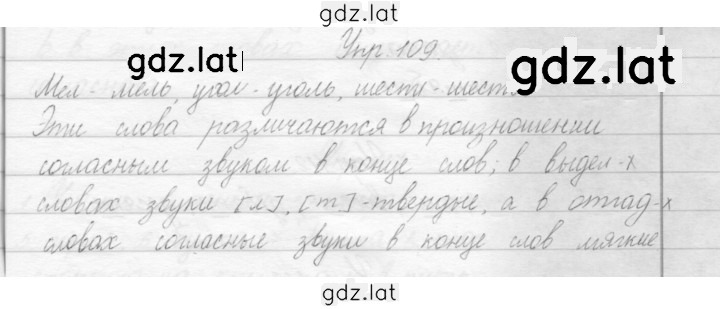 gdz.lat
gdz.lat
gdz.lat
Упр 109.
Мел - мель, угол - уголь, шест - шесть
Эти слова различаются в произношении
согласным звуком в конце слов; в выдел-х
словах звуки [л], [т] - твердые, а в отгад-х
словах согласные звуки в конце слов мягкие
gdz.lat